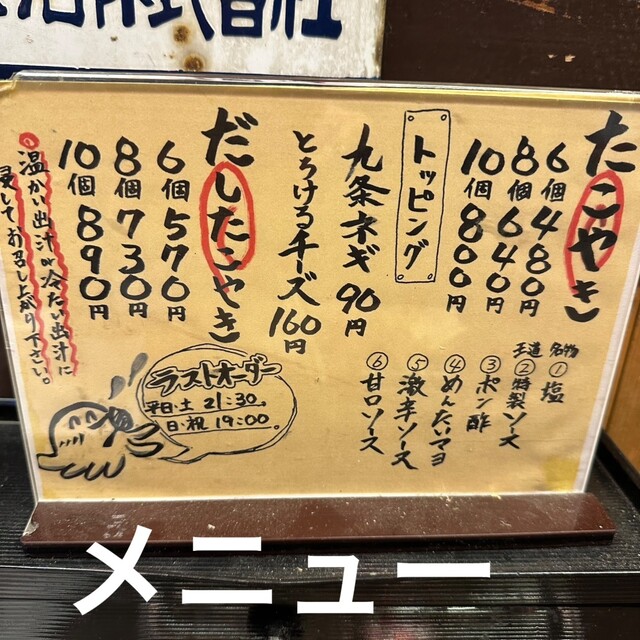 たこやき
6個 480円
8個 640円
10個 800円
名物 ① 塩
王道 ② 特製ソース
③ ポン酢
④ めんたいマヨ
⑤ 激辛ソース
⑥ 甘口ソース
トッピング
九条ネギ 90円
とろけるチーズ 160円
だしたこやき
6個 570円
8個 730円
10個 890円
温かい出汁か冷たい出汁に
浸してお召し上がり下さい。
ラストオーダー
平日・土 21:30。
日・祝 19:00。
メニュー